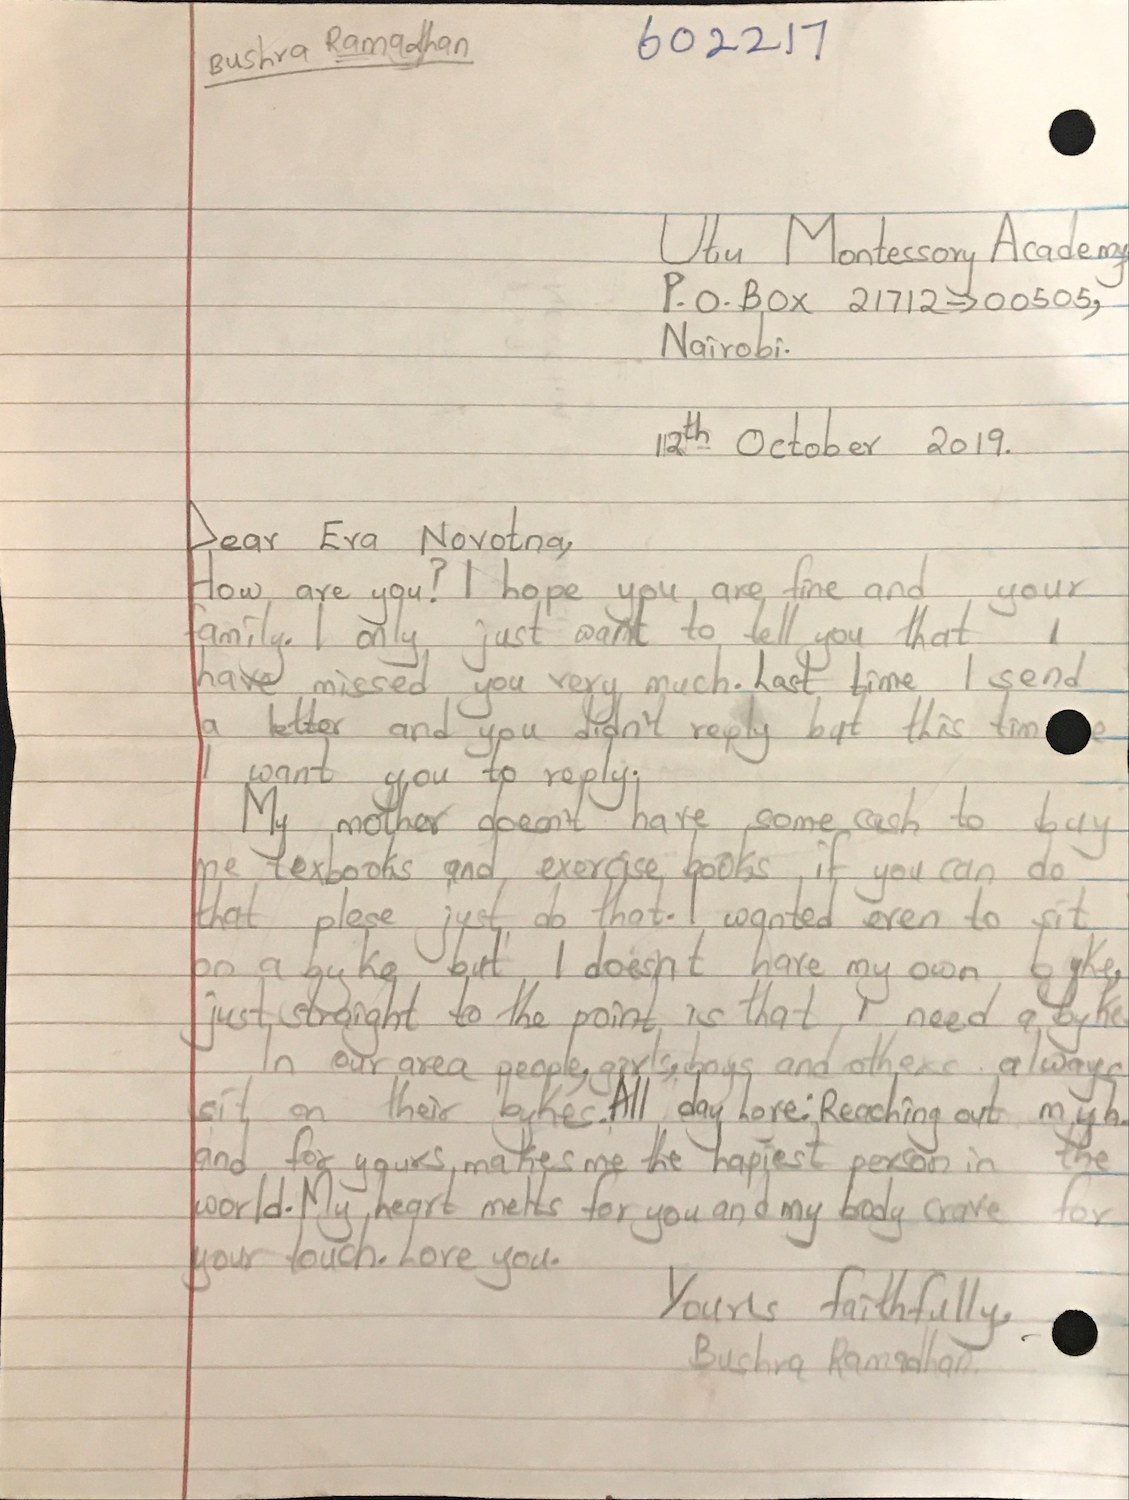 Bushra Ramadhan
602217
Utu Montessory Academy
P.O.BOX 21712->00505,
Nairobi.
12th October 2019.
Dear Eva Novotna,
How are you? I hope you are fine and your
family. I only just want to tell you that I
have missed you very much. Last time I send
a letter and you didn't reply but this time
I want you to reply.
My mother doesn't have some cash to buy
me texbooks and exercise books if you can do
that plese just do that. I wanted even to sit
on a byke but I doesn't have my own byke,
just straight to the point is that I need a byke
In our area people, girls, boys and others always
sit on their bykes. All day Love: Reaching out myh.
and for yours, makes me the hapiest person in the
world. My heart melts for you and my body crave for
your touch. Love you.
Yours faithfully,
Bushra Ramadhan.